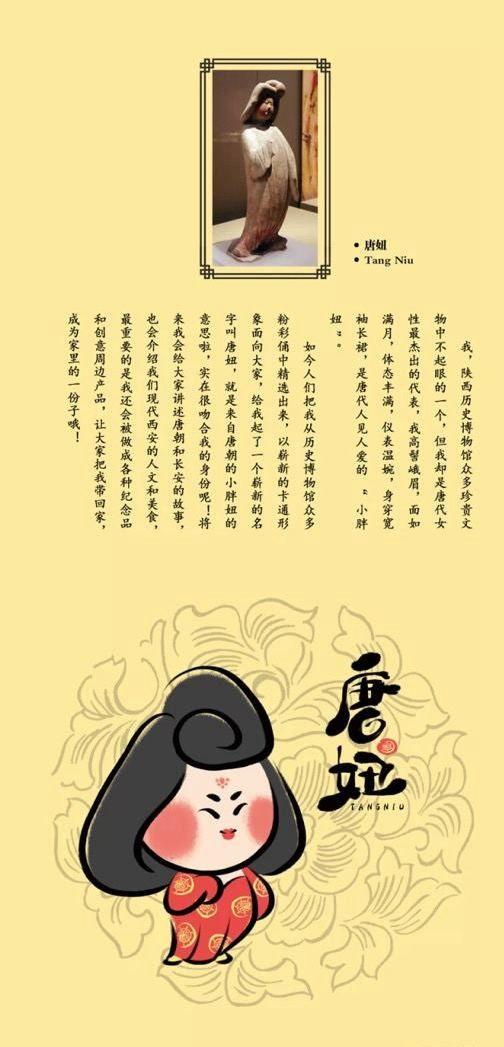 • 唐妞
• Tang Niu
我，陕西历史博物馆众多珍贵文
物中不起眼的一个，但我却是唐代女
性最杰出的代表，我高髻峨眉，面如
满月，体态丰满，仪表温婉，身穿宽
袖长裙，是唐代人见人爱的“小胖
妞”。
如今人们把我从历史博物馆众多
粉彩俑中精选出来，以崭新的卡通形
象面向大家，给我起了一个崭新的名
字叫唐妞，就是来自唐朝的小胖妞的
意思啦，实在很吻合我的身份呢！将
来我会给大家讲述唐朝和长安的故事，
也会介绍我们现代西安的人文和美食，
最重要的是我还会被做成各种纪念品
和创意周边产品，让大家把我带回家，
成为家里的一份子哦！
唐妞
TANGNIU